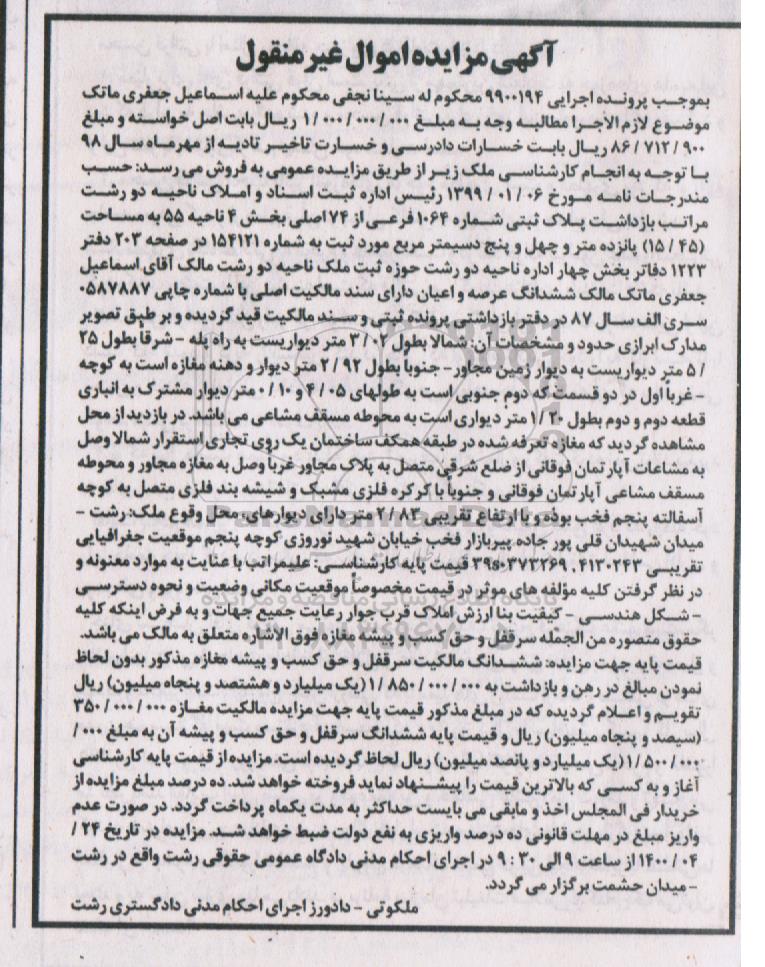 آگهی مزایده اموال غیر منقول
بموجب پرونده اجرایی ۹۹۰۰۱۹۴ محکوم له سینا نجفی محکوم علیه اسماعیل جعفری ماتک
موضوع لازم الاجرا مطالبه وجه به مبلغ ۰۰۰/ ۰۰۰/ ۰۰۰/ ۱ ریال بابت اصل خواسته و مبلغ
۹۰۰/ ۷۱۲/ ۸۶ ریال بابت خسارات دادرسی و خسارت تاخیر تادیه از مهرماه سال ۹۸
با توجه به انجام کارشناسی ملک زیر از طریق مزایده عمومی به فروش می رسد: حسب
مندرجات نامه مورخ ۰۶ /۰۱ /۱۳۹۹ رئیس اداره ثبت اسناد و املاک ناحیه دو رشت
مراتب بازداشت پلاک ثبتی شماره ۱۰۶۴ فرعی از ۷۴ اصلی بخش ۴ ناحیه ۵۵ به مساحت
(۴۵ /۱۵) پانزده متر و چهل و پنج دسیمتر مربع مورد ثبت به شماره ۱۵۴۱۲۱ در صفحه ۲۰۳ دفتر
۱۲۲۳ دفاتر بخش چهار اداره ناحیه دو رشت حوزه ثبت ملک ناحیه دو رشت مالک آقای اسماعیل
جعفری ماتک مالک ششدانگ عرصه و اعیان دارای سند مالکیت اصلی با شماره چاپی ۰۵۸۷۸۸۷
سری الف سال ۸۷ در دفتر بازداشتی پرونده ثبتی و سند مالکیت قید گردیده و بر طبق تصویر
مدارک ابرازی حدود و مشخصات آن: شمالا بطول ۰۲ /۳ متر دیواریست به راه پله - شرقا بطول ۲۵
/ ۵ متر دیواریست به دیوار زمین مجاور- جنوبا بطول ۹۲ /۲ متر دیوار و دهنه مغازه است به کوچه
- غربا اول در دو قسمت که دوم جنوبی است به طولهای ۰۵ /۴ و ۱۰ /۰ متر دیوار مشترک به انباری
قطعه دوم و دوم بطول ۲۰ /۱ متر دیواری است به محوطه مسقف مشاعی می باشد. در بازدید از محل
مشاهده گردید که مغازه تعرفه شده در طبقه همکف ساختمان یک روی تجاری استقرار شمالا وصل
به مشاعات آپارتمان فوقانی از ضلع شرقی متصل به پلاک مجاور غربا وصل به مغازه مجاور و محوطه
مسقف مشاعی آپارتمان فوقانی و جنوبا با کرکره فلزی مشبک و شیشه بند فلزی متصل به کوچه
آسفالته پنجم فخب بوده و با ارتفاع تقریبی ۸۳ /۲ متر دارای دیوارهای محل وقوع ملک: رشت -
میدان شهیدان قلی پور جاده پیربازار فخب خیابان شهید نوروزی کوچه پنجم موقعیت جغرافیایی
تقریبی ۴۱۳۰۲۴۳ , ۳۹s۰۳۷۳۲۶۹ قیمت پایه کارشناسی: علیمراتب با عنایت به موارد معنونه و
در نظر گرفتن کلیه مؤلفه های موثر در قیمت مخصوصا موقعیت مکانی وضعیت و نحوه دسترسی
- شکل هندسی - کیفیت بنا ارزش املاک قرب جوار رعایت جمیع جهات و به فرض اینکه کلیه
حقوق متصوره من الجمله سرقفل و حق کسب و پیشه مغازه فوق الاشاره متعلق به مالک می باشد.
قیمت پایه جهت مزایده: ششدانگ مالکیت سرقفل و حق کسب و پیشه مغازه مذکور بدون لحاظ
نمودن مبالغ در رهن و بازداشت به ۰۰۰/ ۰۰۰/ ۸۵۰/ ۱(یک میلیارد و هشتصد و پنجاه میلیون) ریال
تقویم و اعلام گردیده که در مبلغ مذکور قیمت پایه جهت مزایده مالکیت مغازه ۰۰۰/ ۰۰۰/ ۳۵۰
(سیصد و پنجاه میلیون) ریال و قیمت پایه ششدانگ سرقفل و حق کسب و پیشه آن به مبلغ ۰۰۰/
۰۰۰/ ۵۰۰/ ۱(یک میلیارد و پانصد میلیون) ریال لحاظ گردیده است. مزایده از قیمت پایه کارشناسی
آغاز و به کسی که بالاترین قیمت را پیشنهاد نماید فروخته خواهد شد. ده درصد مبلغ مزایده از
خریدار فی المجلس اخذ و مابقی می بایست حداکثر به مدت یکماه پرداخت گردد. در صورت عدم
واریز مبلغ در مهلت قانونی ده درصد واریزی به نفع دولت ضبط خواهد شد. مزایده در تاریخ ۲۴ /
۰۴ /۱۴۰۰ از ساعت ۹ الی ۳۰ : ۹ در اجرای احکام مدنی دادگاه عمومی حقوقی رشت واقع در رشت
- میدان حشمت برگزار می گردد.
ملکوتی - دادورز اجرای احکام مدنی دادگستری رشت
ParsNamadData